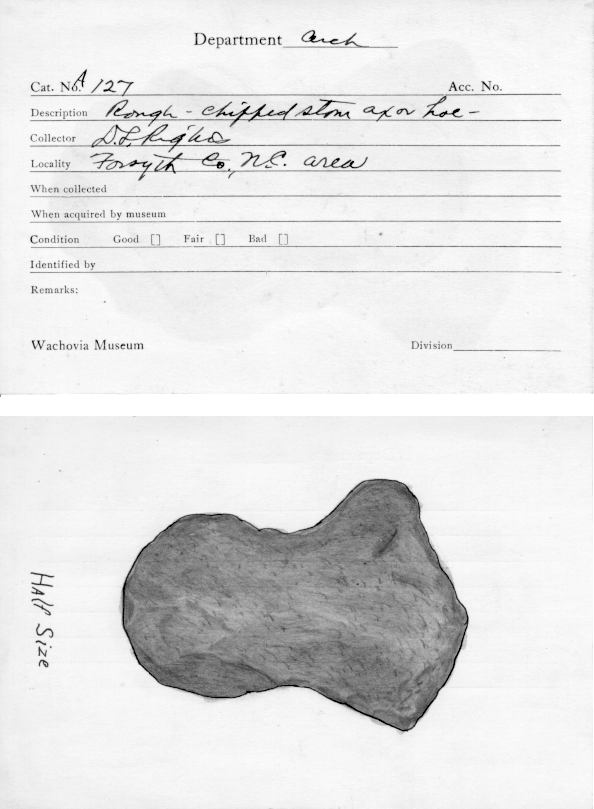 Department Arch
Cat. No. A 127 Acc. No.
Description Rough - chipped stone ax or hoe -
Collector D.L. Rights
Locality Forsyth Co., N.C. area
When collected
When acquired by museum
Condition Good [] Fair [] Bad []
Identified by
Remarks:
Wachovia Museum Division
Half Size